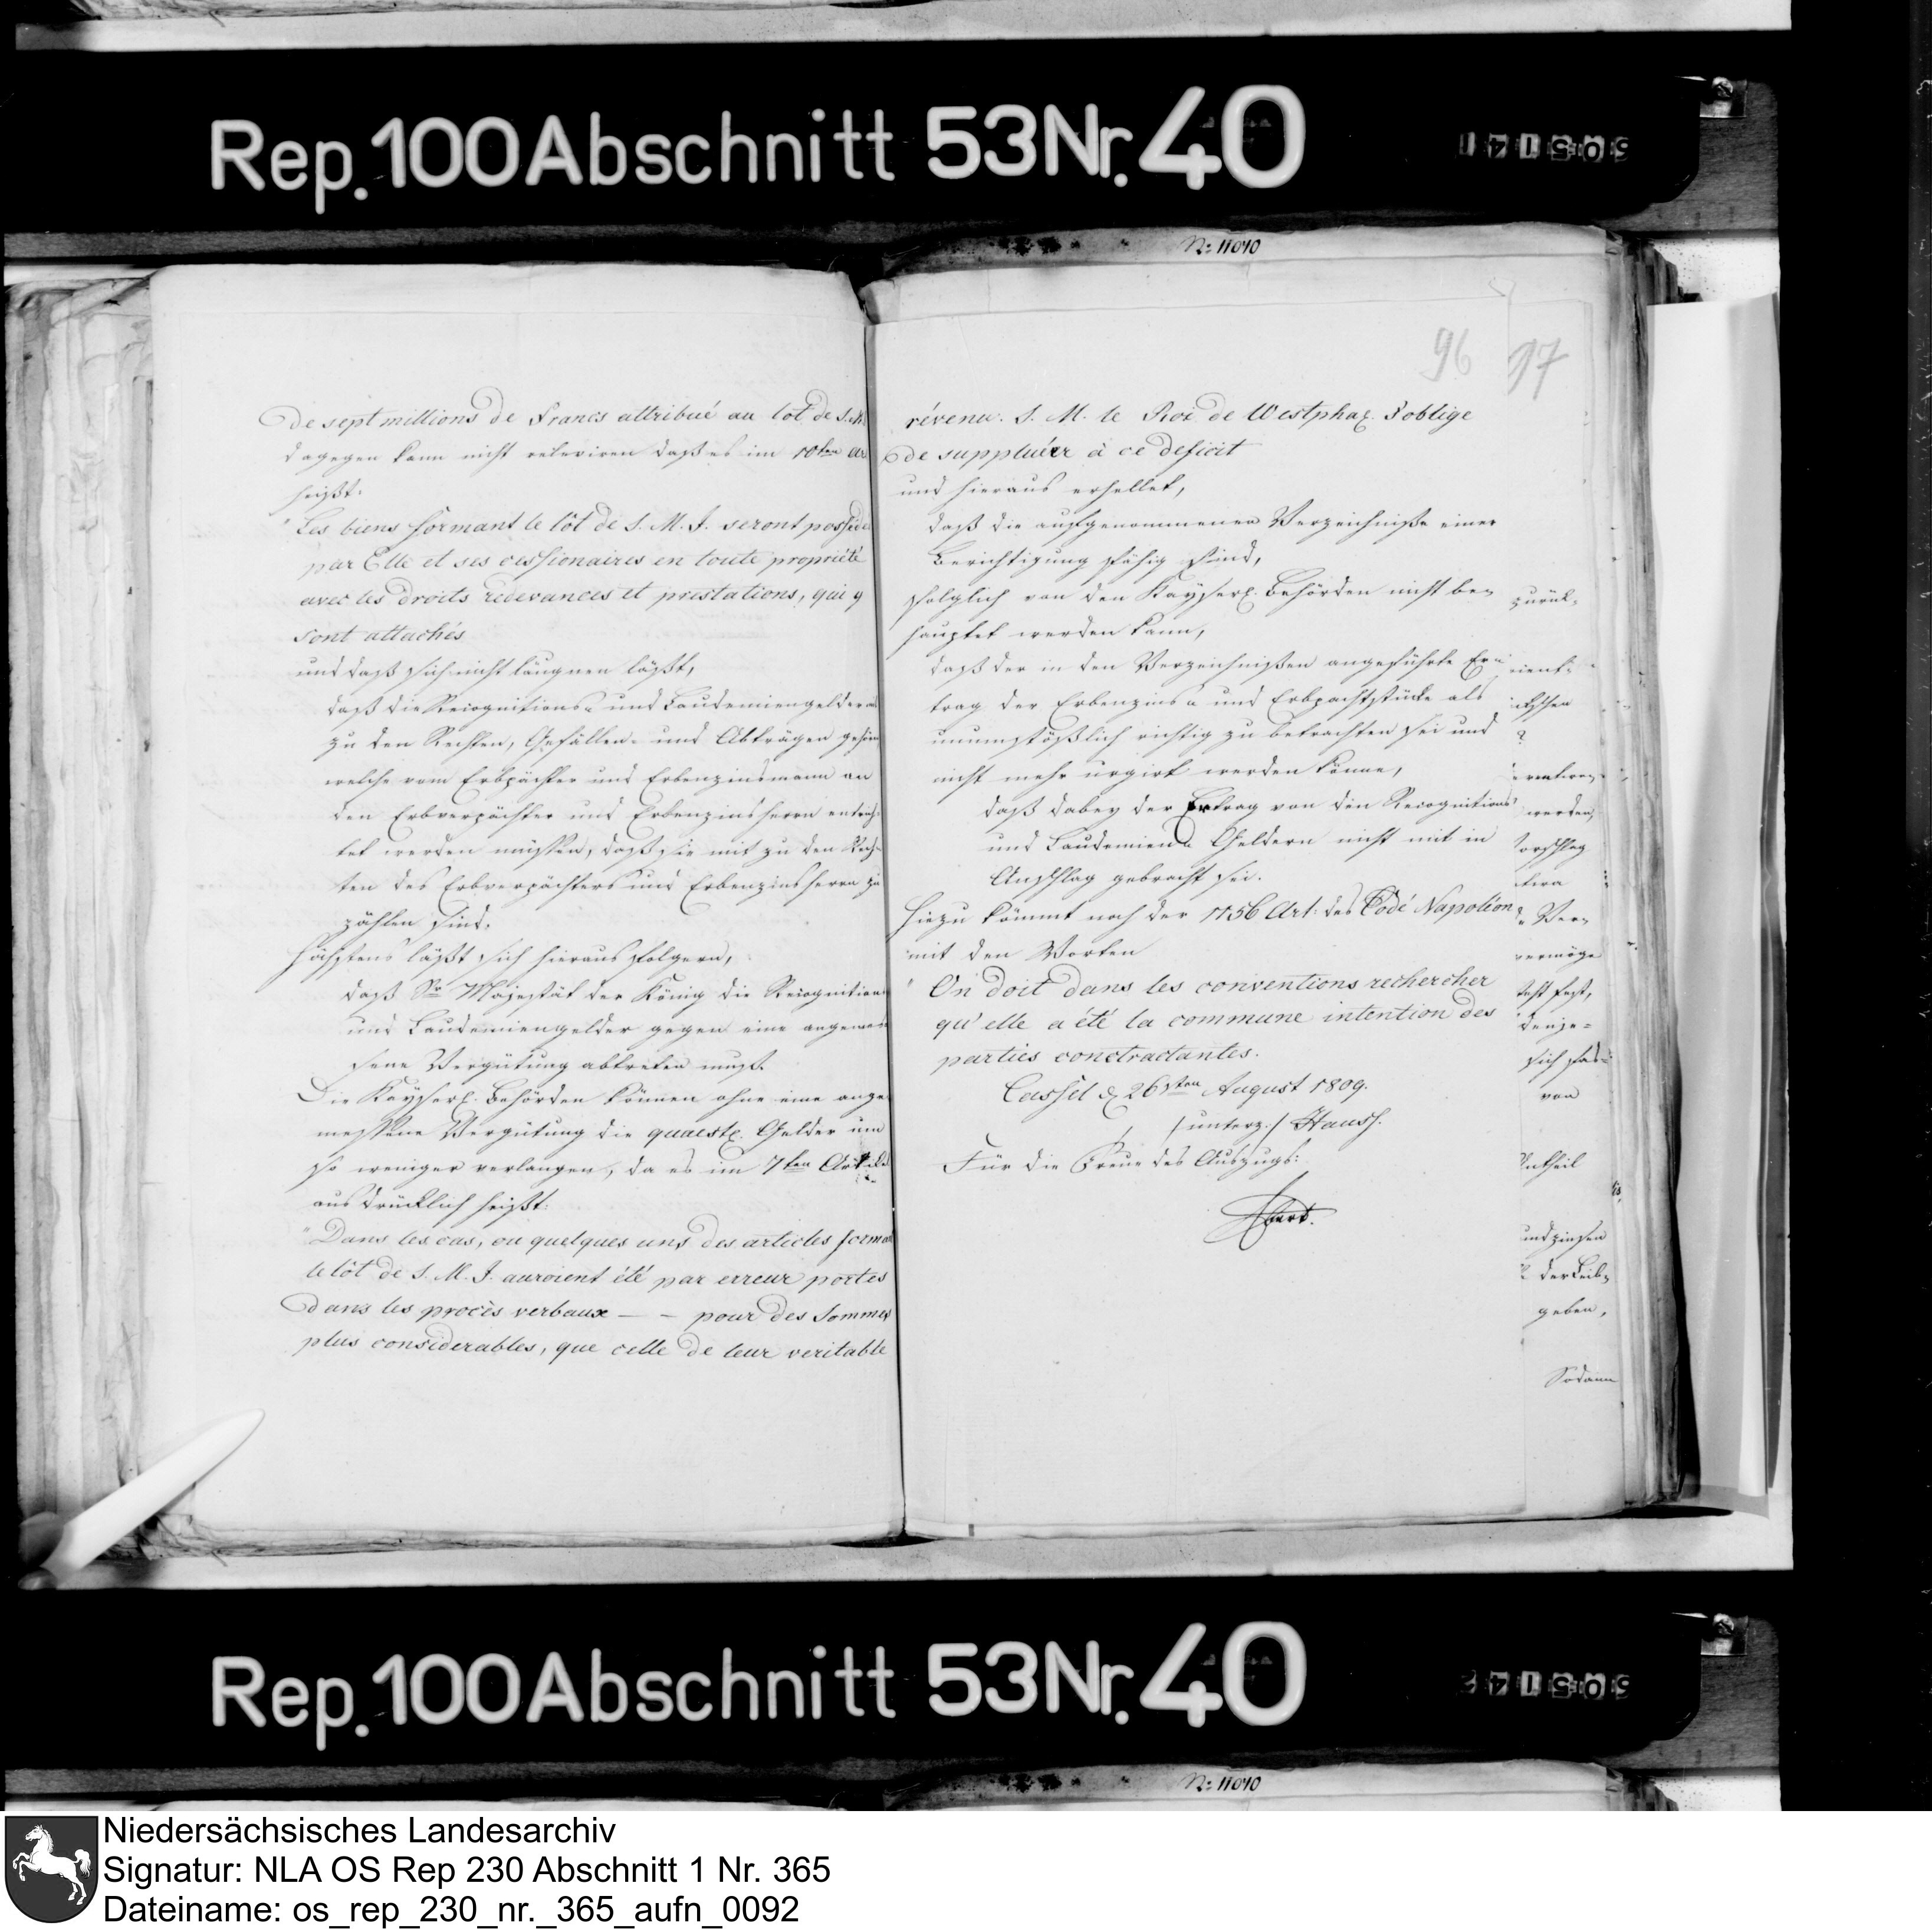 Rep. 100 Abschnitt 53 Nr. 40
50514
N: 11010
De sept millions de Francs attribué au lot de S. M.
dagegen kann nicht releviren daß es im 10ten Ar
heißt:
" Les biens formant le lôt de S. M. I. seront possédé
par Elle et ses cessionaires en toute propriété
avec les droits redevances et prestations, qui y
sont attachés
und daß sich nicht läugnen läßt,
daß die Recognitions- und Laudemiengelder
zu den Rechten, Gefällen- und Abträgen gehören
welche vom Erbpächter und Erbenzinsmann an
den Erbverpächter und Erbenzinsherrn entrich-
tet werden müssen, daß sie mit zu den Rech-
ten des Erbverpächters und Erbenzinsherrn zu
zählen sind.
Höchstens läßt sich hieraus folgern,
daß Sr Majestät der König die Recognition
und Laudemiengelder gegen eine angemes
sene Vergütung abtreten muß.
Die Kayserl. Behörden können ohne eine ange
messene Vergütung die quaest. Gelder um
so weniger verlangen, da es im 7ten Artikel
ausdrücklich heißt:
" Dans les cas, ou quelques uns des articles forma
le lôt de S. M. I. auroient été par erreur portés
dans les procès verbaux — – pour des Sommes
plus considerables, que celle de leur veritable
96 97
révenu. S. M. le Roi de Westphal. s'oblige
de suppluéer à ce deficit
und hieraus erhellet,
daß die aufgenommenen Verzeichniße einer
Berichtigung fähig sind,
folglich von den Kayserl. Behörden nicht be-
hauptet werden kann,
daß der in den Verzeichnißen angeführte Er-
trag der Erbenzins- und Erbpachtstücke als
unumstößlich richtig zu betrachten sei und
nicht mehr urgirt werden könne,
daß dabey der Ertrag von den Recognitions
und Laudemien- Geldern nicht mit in
Anschlag gebracht sei.
Hiezu kömmt noch der 1156 Art. des Codé Napoléon
mit den Worten
" On doit dans les conventions rechercher
qu'elle a été la commune intention des
parties conctractantes.
Cassel d. 26sten August 1809.
/unterz./ Hauss.
Für die Treue des Auszugs:
zurük-
werden,
vermöge
steht fest,
denje-
von
Antheil
und zinsen
der Leib-
geben,
Sodann
Rep. 100 Abschnitt 53 Nr. 40
50514
N: 11010
Niedersächsisches Landesarchiv
Signatur: NLA OS Rep 230 Abschnitt 1 Nr. 365
Dateiname: os_rep_230_nr._365_aufn_0092